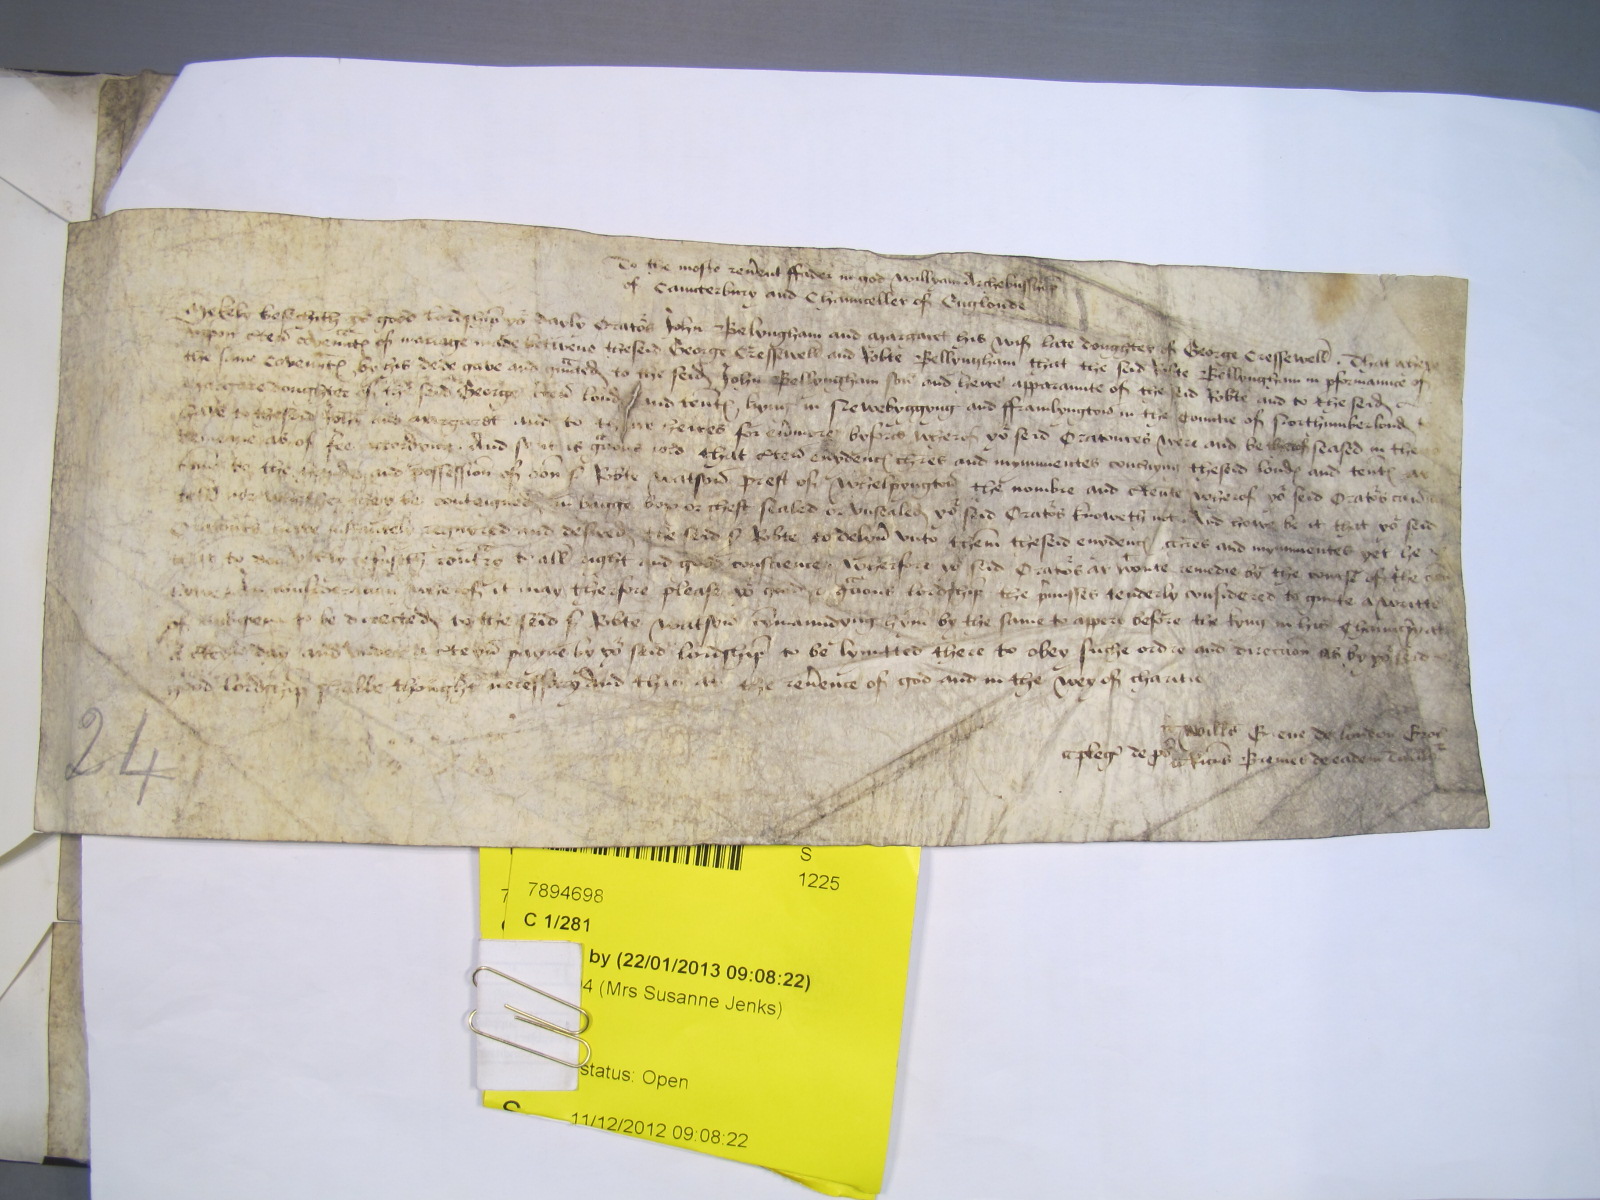 To the moste reverent ffader in god William Archebusshop
of Caunterbury and Chaunceller of Englonde
Mekely besechith yor good lordship yor dayly Orators John Belyngham and Margaret his wif late doughter of George Cressewell. That where
upon cten covenntes of mariage made betwene theseid George Cressewell and Robte Bellyngham that the seid Robte Bellyngham in pformaunce of
the same covenntes by his dede gave and gunted to the seid John Bellyngham son and heire apparaunte of the seid Robte and to the seid
Margarete doughter of the seid George cten londes and tentes lying in Newebyggyng and fframlyngton in the Countie of Northumberlond
have to theseid John and Margaret and to theire heires for evmore byforce wherof yor seid Oratoures were and be seased in the
demeane as of fee accordyng. And so it is guous lord that cten evydences chres and mynumentes concnyng theseid londes and tentes ar
come to the handes and possession of oon sr Robte Watson prest of Whelpyngton the nombre and cteute wherof yor seid Orators can
tell nor whether they be conteigned in bagge box or chest sealed or vnsealed yor seid Orators knoweth not. And howe be it that yor seid
Oratours have required and desired the seid sr Robte to delyv vnto them theseid evydences chres and mynumentes yet he
that to do refusith contry to all right and good conscience. Wherfore yor seid Orators ar wtoute remedie by the course of the comen
lawe. In consideracion wherof it may therfore please yor good & guous lordship the pmisses tenderly considered to gunte a writte
of subpena to be directed to the seid sr Robte Watson comaundyng hym by the same to appere before the kyng in his Chauncry at
a cteyn day and vnder a cteyn payne by yor seid lordship to be lymitted there to obey suche ordre and direccion as by yor seid
good lordship shalbe thought necessary And this at the revence of god and in the wey of charitie
Wills Grene de london
pleg de ps
Ricus de eadem
24
S
1225
7894698
C 1/281
by (22/01/2013 09:08:22)
4 (Mrs Susanne Jenks)
status: Open
11/12/2012 09:08:22